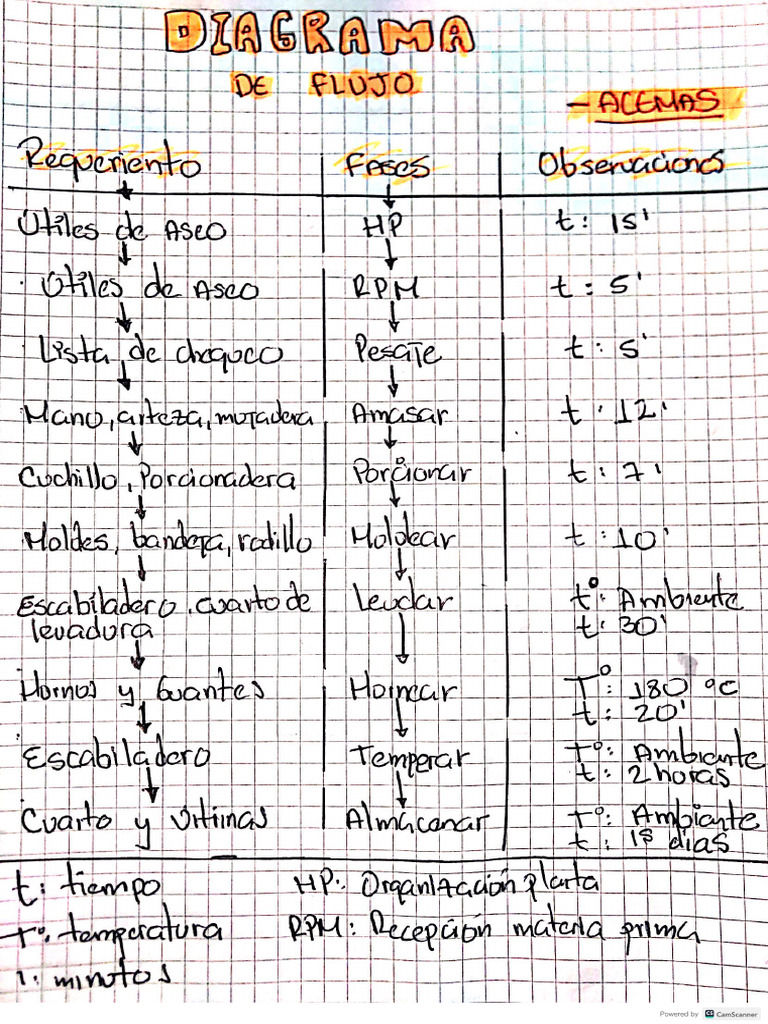 DIAGRAMA
DE FLUJO
- ACEMAS
Requeriento Fases Observaciones
Utiles de Aseo HP t: 15'
Utiles de Aseo RPM t: 5'
Lista de chequeo Pesaje t: 5'
Mano, arteza, mojadera Amasar t: 12'
Cuchillo, Porcionadera Porcionar t: 7'
Moldes, bandeja, rodillo Moldear t: 10'
Escabiladero, cuarto de Leudar t°: Ambiente
levadura t: 30'
Hornos y Guantes Hornear T°: 180 °C
t: 20'
Escabiladero Temperar T°: Ambiente
t: 2 horas
Cuarto y Vitrinas Almacenar T°: Ambiente
t: 15 dias
t: tiempo HP: Organización planta
T°: temperatura RPM: Recepción materia prima
': minutos
Powered by CS CamScanner